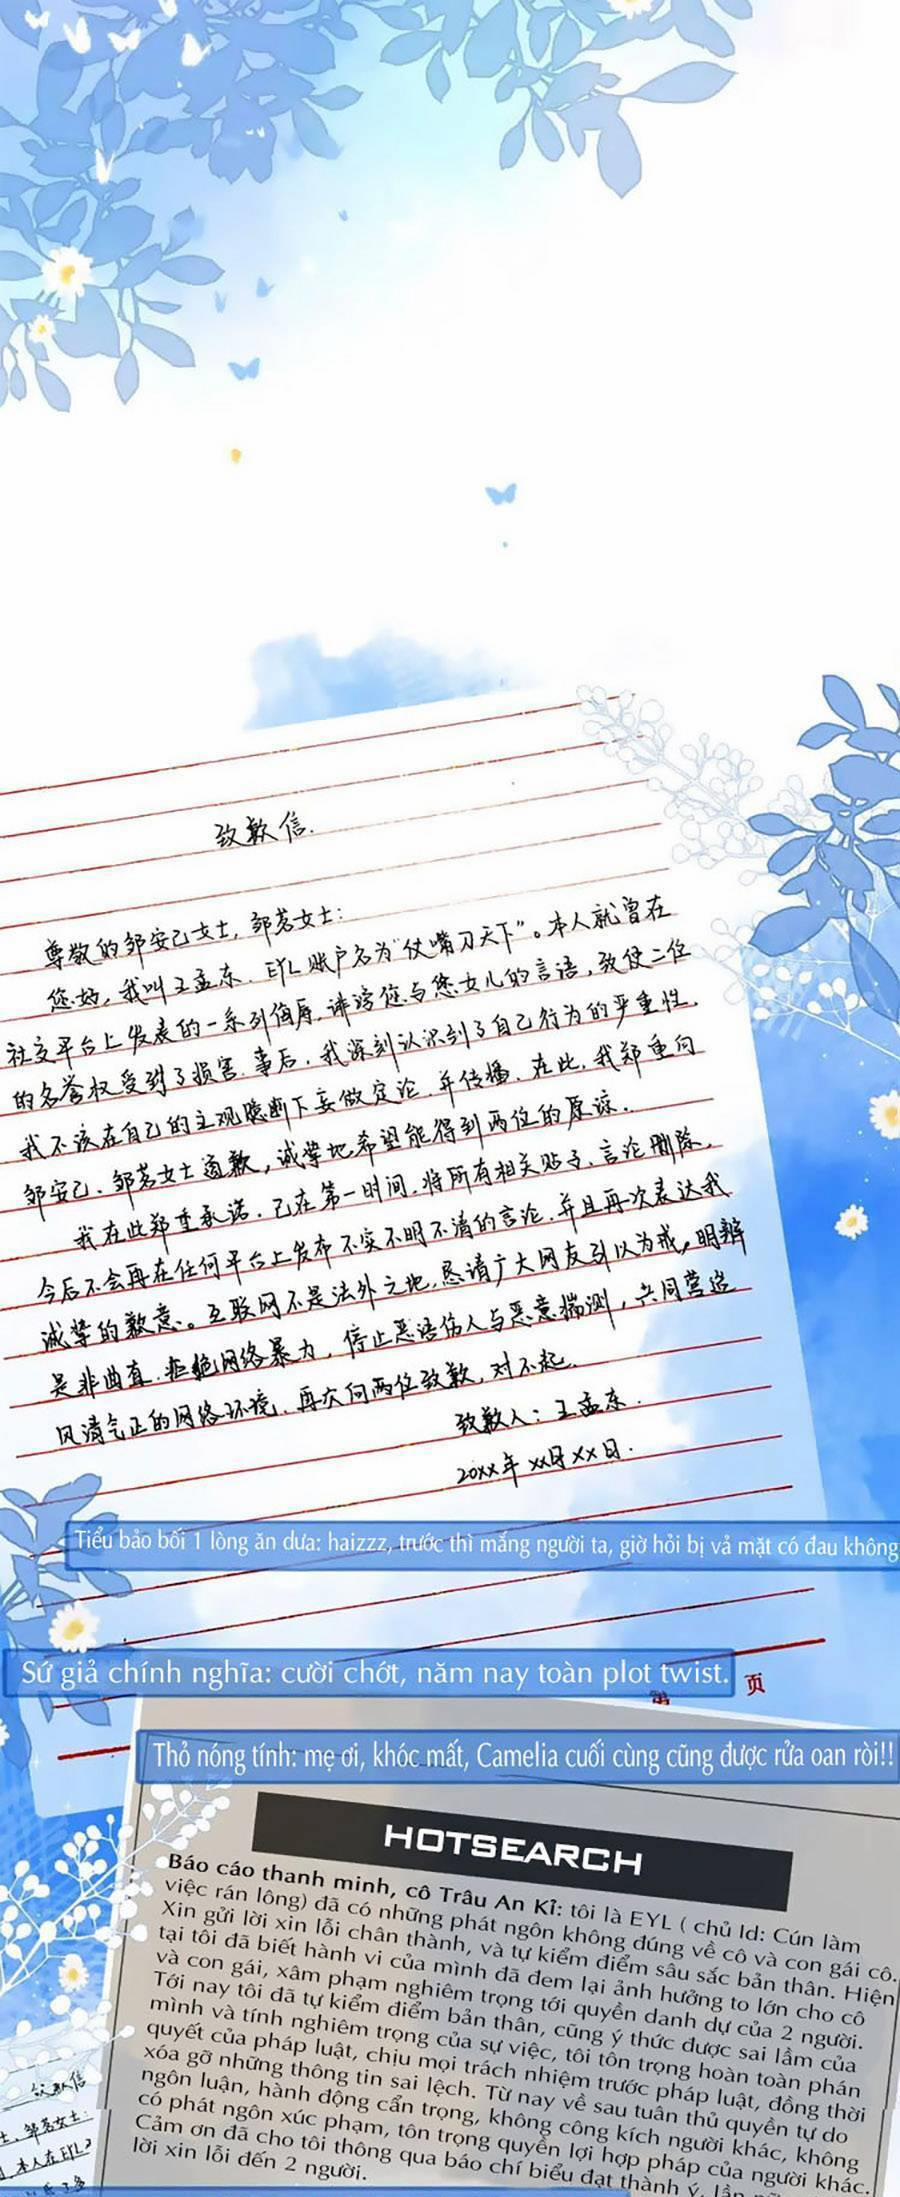 致歉信.
尊敬的邹安己女士, 邹茗女士:
您好, 我叫王孟东. EYL账户名为"仗嘴刃天下"。本人就曾在
社交平台上发表的一系列侮辱, 诽谤您与您女儿的言语, 致使二位
的名誉权受到了损害. 事后, 我深刻认识到了自己行为的严重性.
我不该在自己的主观臆断下妄做定论. 并传播. 在此, 我郑重向
邹安己. 邹茗女士道歉, 诚挚地希望能得到两位的原谅.
我在此郑重承诺. 已在第一时间. 将所有相关贴子、言论删除.
今后不会再在任何平台上发布不实不明不清的言论. 并且再次表达我
诚挚的歉意。互联网不是法外之地, 恳请广大网友引以为戒, 明辨
是非曲直. 拒绝网络暴力, 停止恶语伤人与恶意揣测, 共同营造
风清气正的网络环境. 再次向两位致歉, 对不起.
致歉人: 王孟东.
20xx年 xx月 xx日.
Tiểu bảo bối 1 lòng ăn dưa: haizzz, trước thì mắng người ta, giờ hỏi bị vả mặt có đau không
Sứ giả chính nghĩa: cười chớt, năm nay toàn plot twist.
页
Thỏ nóng tính: mẹ ơi, khóc mất, Camelia cuối cùng cũng được rửa oan ròi!!
HOTSEARCH
Báo cáo thanh minh, cô Trâu An Kỉ: tôi là EYL ( chủ Id: Cún làm
việc rán lông) đã có những phát ngôn không đúng về cô và con gái cô.
Xin gửi lời xin lỗi chân thành, và tự kiểm điểm sâu sắc bản thân. Hiện
tại tôi đã biết hành vi của mình đã đem lại ảnh hưởng to lớn cho cô
và con gái, xâm phạm nghiêm trọng tới quyền danh dự của 2 người.
Tới nay tôi đã tự kiểm điểm bản thân, cũng ý thức được sai lầm của
mình và tính nghiêm trọng của sự việc, tôi tôn trọng hoàn toàn phán
quyết của pháp luật, chịu mọi trách nhiệm trước pháp luật, đồng thời
xóa gỡ những thông tin sai lệch. Từ nay về sau tuân thủ quyền tự do
ngôn luận, hành động cẩn trọng, không công kích người khác, không
có phát ngôn xúc phạm, tôn trọng quyền lợi hợp pháp của người khác.
Cảm ơn đã cho tôi thông qua báo chí biểu đạt thành ý, lần
lời xin lỗi đến 2 người.
致歉信
邹茗女士:
本人在EYL